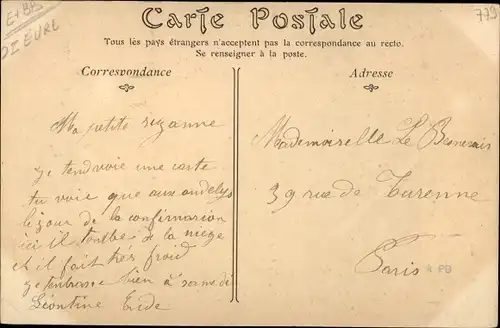 E+BA
OZ EURE
779
Carte Postale
Tous les pays étrangers n'acceptent pas la correspondance au recto.
Se renseigner à la poste.
Correspondance
Adresse
Ma petite suzanne
je tendvoie une carte
tu voie que aux andelys
le jour de la confirmation
ici il tombe de la neige
et il fait très froid
je tenbrasse bien à
Léontine
Mademoiselle Le
39 rue de Turenne
Paris